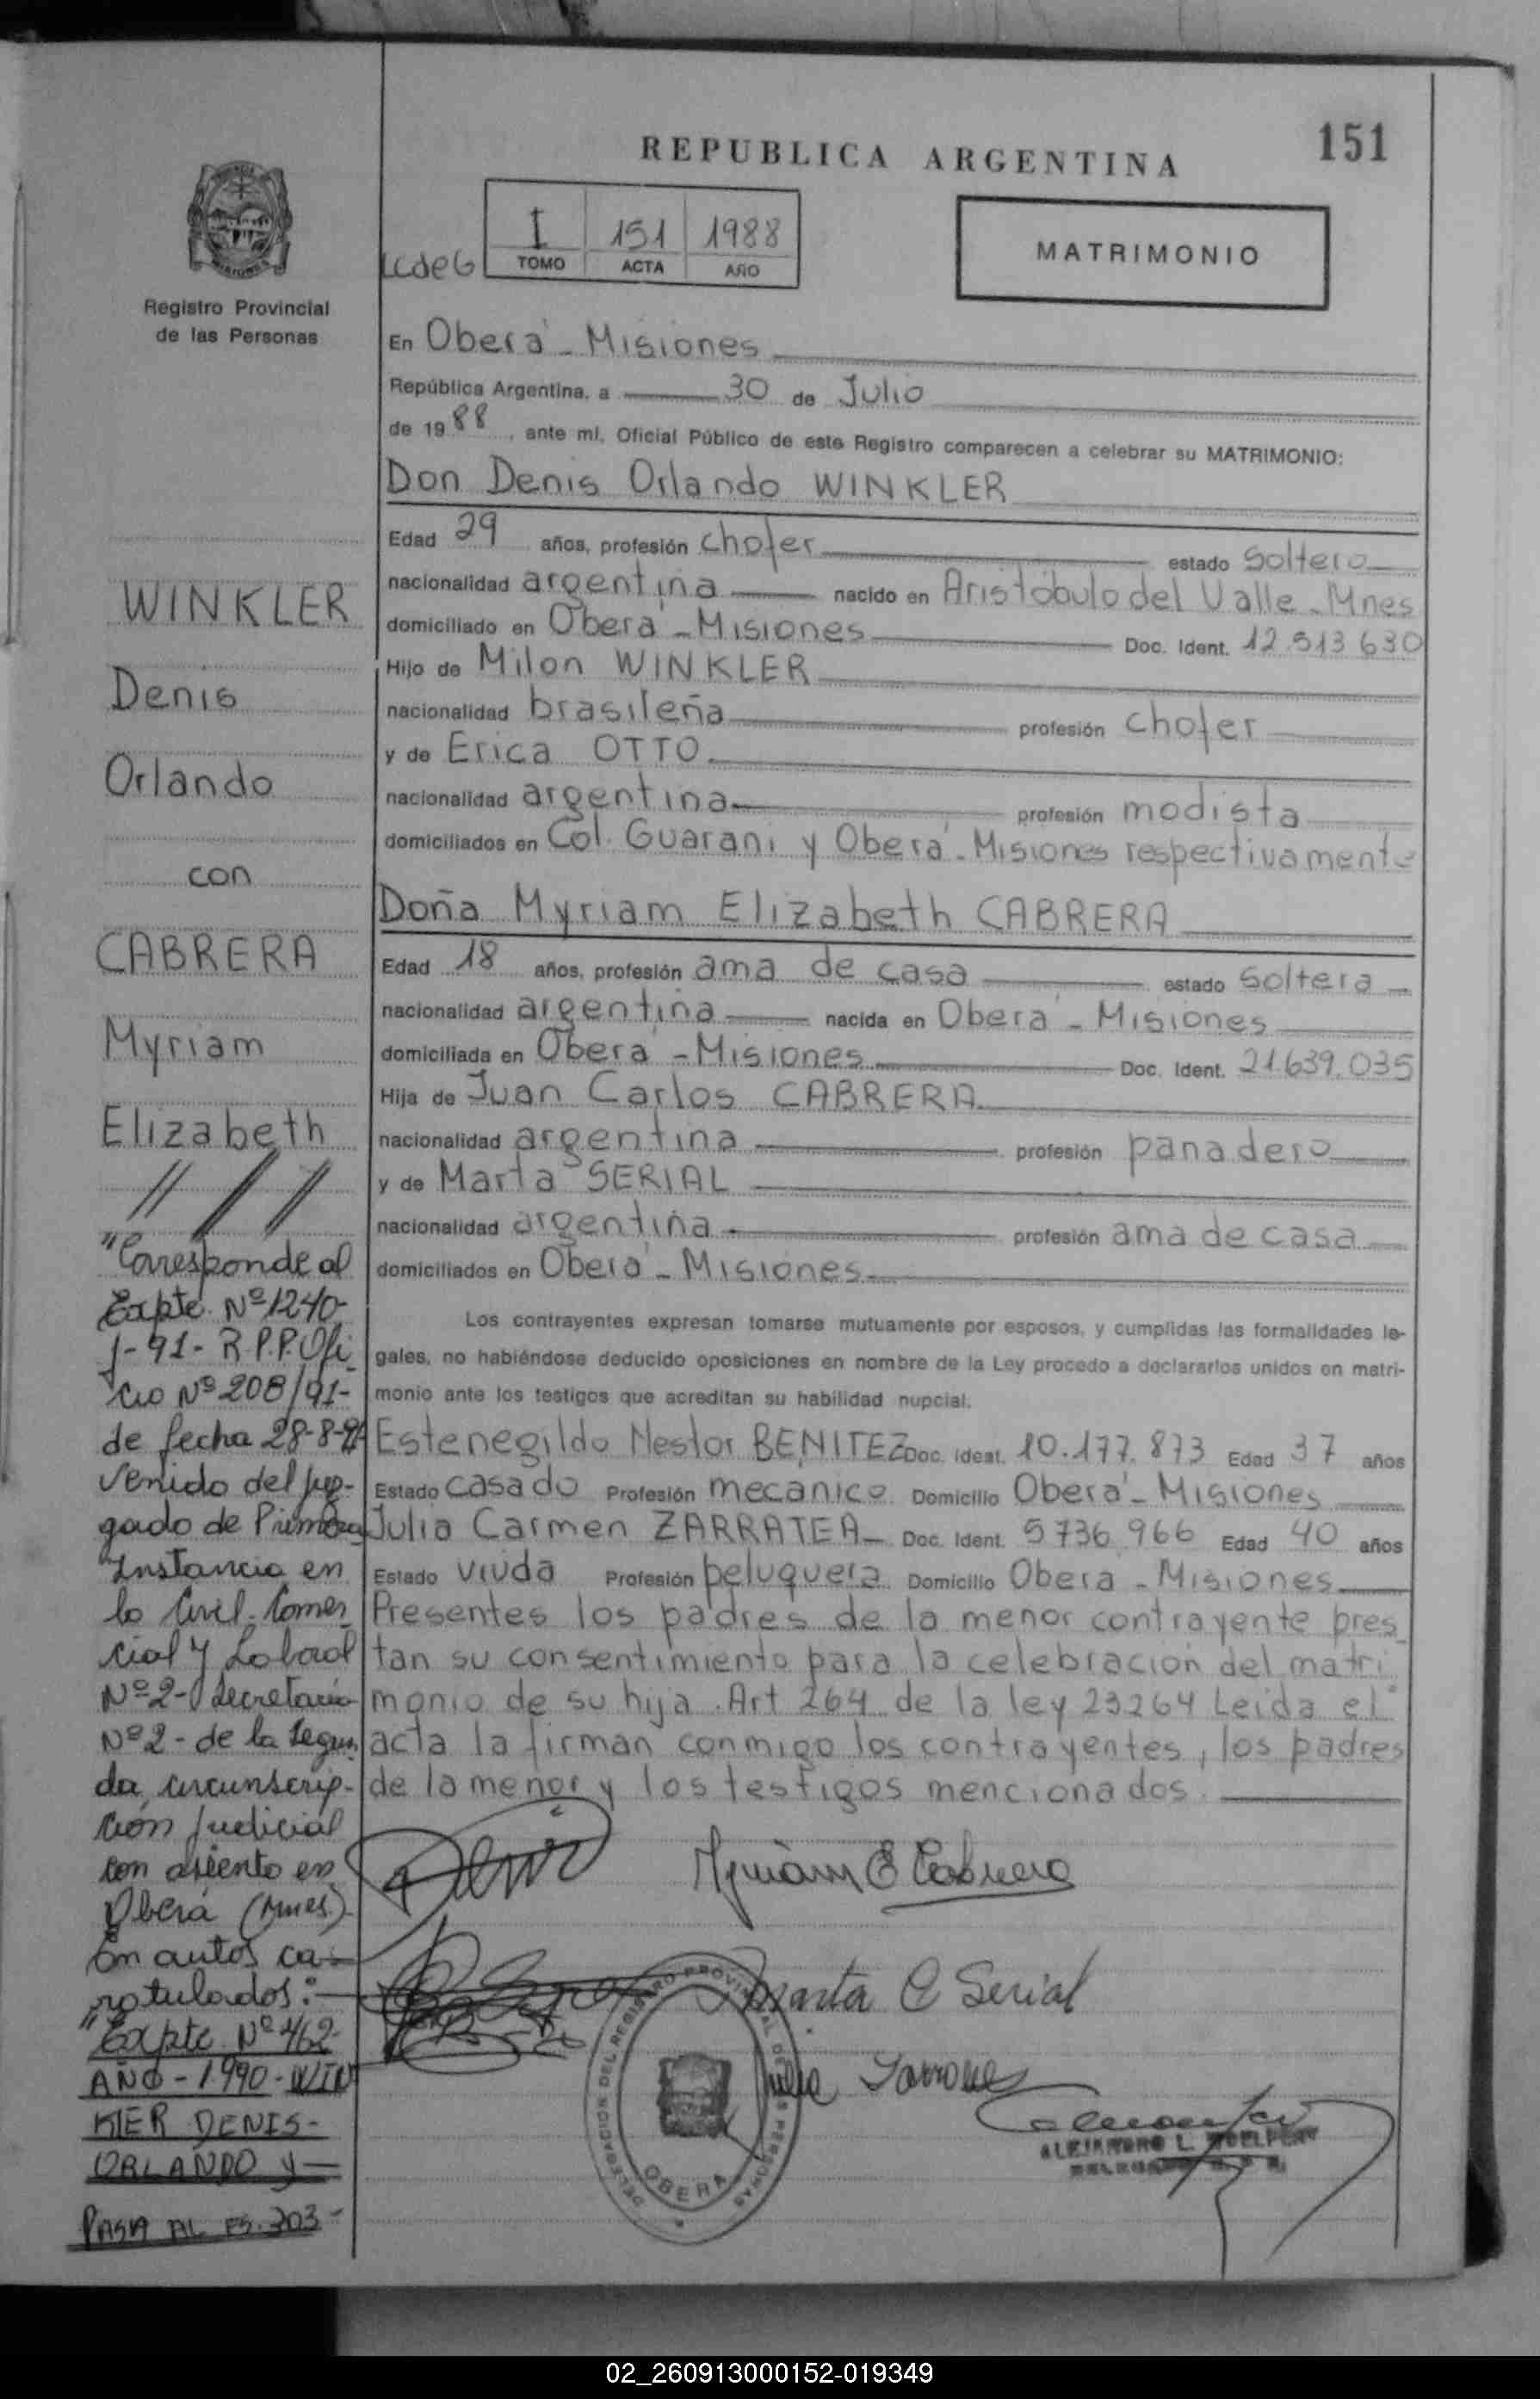 151
REPUBLICA ARGENTINA
I 151 1988
TOMO ACTA AÑO
MATRIMONIO
Registro Provincial
de las Personas
En Oberá - Misiones
República Argentina, a 30 de Julio
de 1988, ante mí, Oficial Público de este Registro comparecen a celebrar su MATRIMONIO:
Don Denis Orlando WINKLER
Edad 29 años, profesión chofer estado soltero
nacionalidad argentina nacido en Aristóbulo del Valle - Mnes
domiciliado en Oberá - Misiones Doc. Ident. 12.513.630
Hijo de Milon WINKLER
nacionalidad brasileña profesión chofer
y de Erica OTTO
nacionalidad argentina profesión modista
domiciliados en Col. Guarani y Oberá - Misiones respectivamente
Doña Myriam Elizabeth CABRERA
Edad 18 años, profesión ama de casa estado soltera
nacionalidad argentina nacida en Oberá - Misiones
domiciliada en Oberá - Misiones Doc. Ident. 21.639.035
Hija de Juan Carlos CABRERA
nacionalidad argentina profesión panadero
y de Marta SERIAL
nacionalidad argentina profesión ama de casa
domiciliados en Oberá - Misiones
Los contrayentes expresan tomarse mutuamente por esposos, y cumplidas las formalidades le-
gales, no habiéndose deducido oposiciones en nombre de la Ley procedo a declararlos unidos en matri-
monio ante los testigos que acreditan su habilidad nupcial.
Estenegildo Nestor BENITEZ Doc. Ident. 10.177.873 Edad 37 años
Estado casado Profesión mecanico Domicilio Oberá - Misiones
Julia Carmen ZARRATEA - Doc. Ident. 5736.966 Edad 40 años
Estado viuda Profesión peluquera Domicilio Obera - Misiones
Presentes los padres de la menor contrayente pres
tan su consentimiento para la celebracion del matri
monio de su hija. Art 264 de la ley 23264 Leida el
acta la firman conmigo los contrayentes, los padres
de la menor y los testigos mencionados.
WINKLER
Denis
Orlando
con
CABRERA
Myriam
Elizabeth
"Corresponde al
Expte. Nº 1240-
J-91- R.P.P. Ofi
cio Nº 208/91-
de fecha 28-8-91
venido del Juz-
gado de Primera
Instancia en
lo Civil, Comer
cial y Laboral
Nº 2 - Secretaria
Nº 2 - de la segun
da circunscrip-
ción Judicial
con asiento en
Oberá (Mnes.)
En autos ca-
ratulados:
"Expte Nº 462-
AÑO - 1.990 - WIN
KLER DENIS-
ORLANDO y
PASA AL FS. 303-
Myriam E Cabrera
Marta C Serial
DELEGACION DEL REGISTRO PROVINCIAL DE LAS PERSONAS
OBERA
02_260913000152-019349